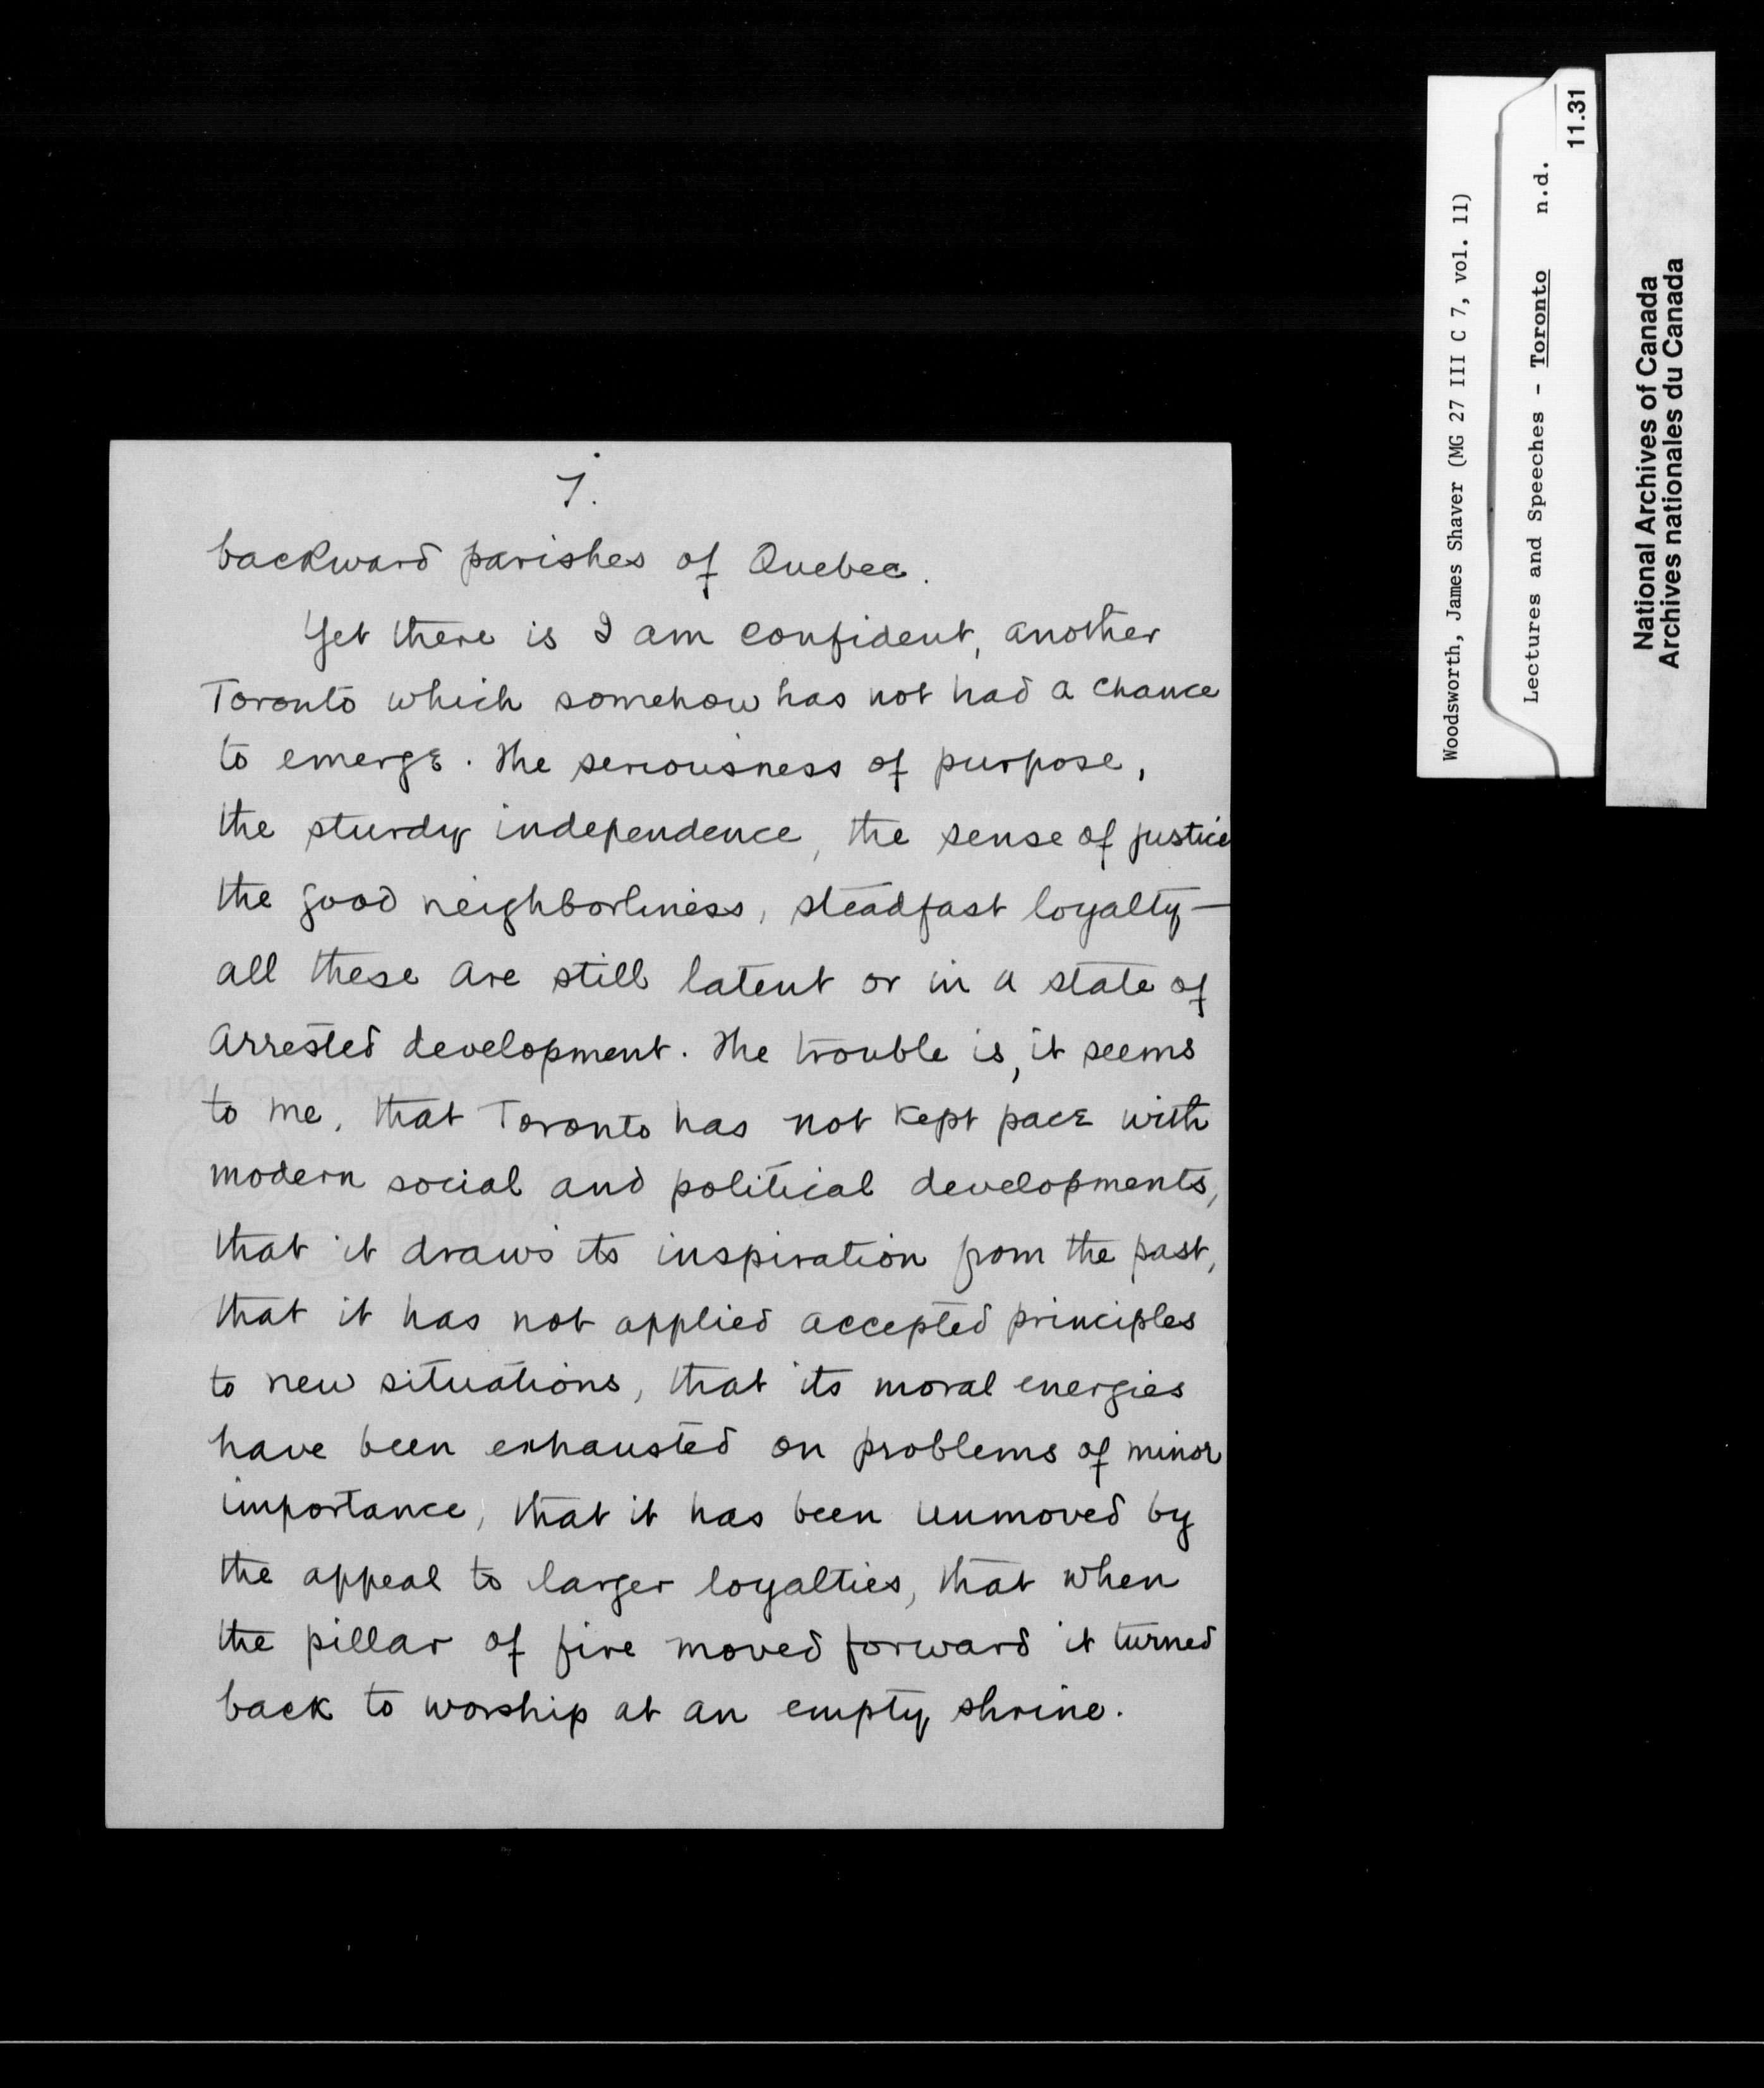 7.
backward parishes of Quebec.
Yet there is I am confident, another
Toronto which somehow has not had a chance
to emerge. The seriousness of purpose,
the sturdy independence, the sense of justice
the good neighborliness, steadfast loyalty—
all these are still latent or in a state of
arrested development. The trouble is, it seems
to me, that Toronto has not kept pace with
modern social and political developments,
that it draws its inspiration from the past,
that it has not applied accepted principles
to new situations, that its moral energies
have been exhausted on problems of minor
importance, that it has been unmoved by
the appeal to larger loyalties, that when
the pillar of fire moved forward it turned
back to worship at an empty shrine.
Woodsworth, James Shaver (MG 27 III C 7, vol. 11)
Lectures and Speeches - Toronto n.d.
11.31
National Archives of Canada
Archives nationales du Canada